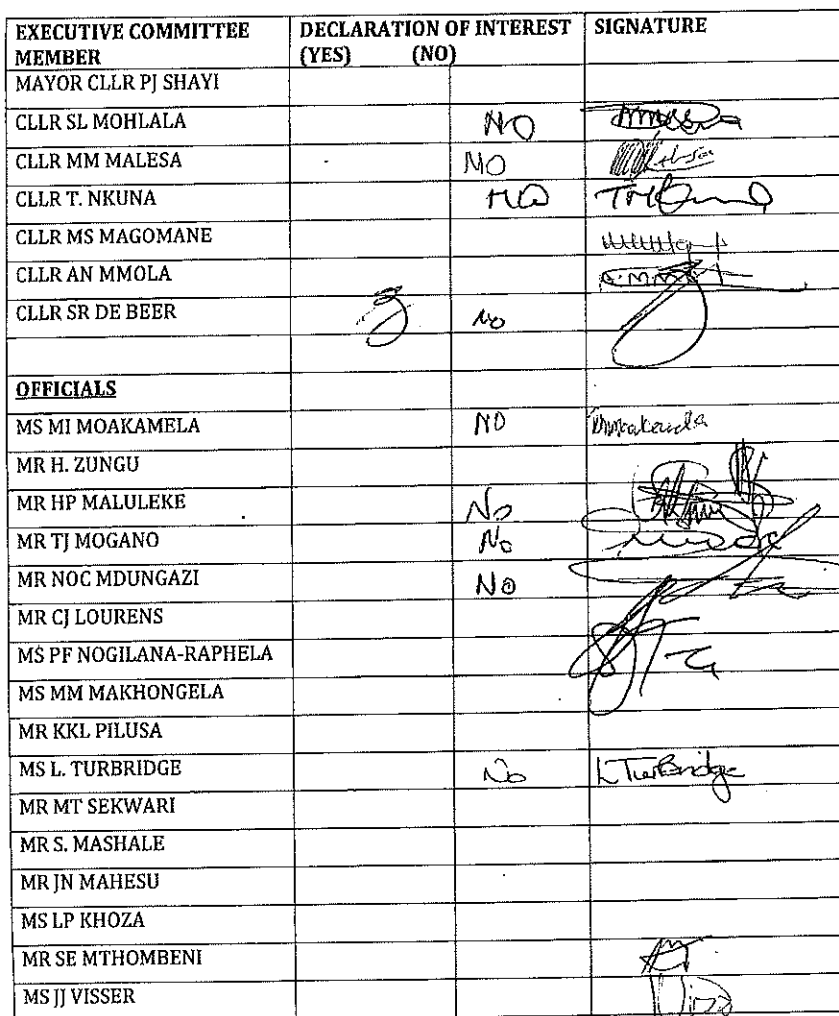 EXECUTIVE COMMITTEE MEMBER DECLARATION OF INTEREST (YES) (NO) SIGNATURE
MAYOR CLLR PJ SHAYI
CLLR SL MOHLALA NO
CLLR MM MALESA NO
CLLR T. NKUNA NO
CLLR MS MAGOMANE
CLLR AN MMOLA
CLLR SR DE BEER No
OFFICIALS
MS MI MOAKAMELA NO
MR H. ZUNGU
MR HP MALULEKE No
MR TJ MOGANO No
MR NOC MDUNGAZI No
MR CJ LOURENS
MS PF NOGILANA-RAPHELA
MS MM MAKHONGELA
MR KKL PILUSA
MS L. TURBRIDGE No LTurBridge
MR MT SEKWARI
MR S. MASHALE
MR JN MAHESU
MS LP KHOZA
MR SE MTHOMBENI
MS JJ VISSER